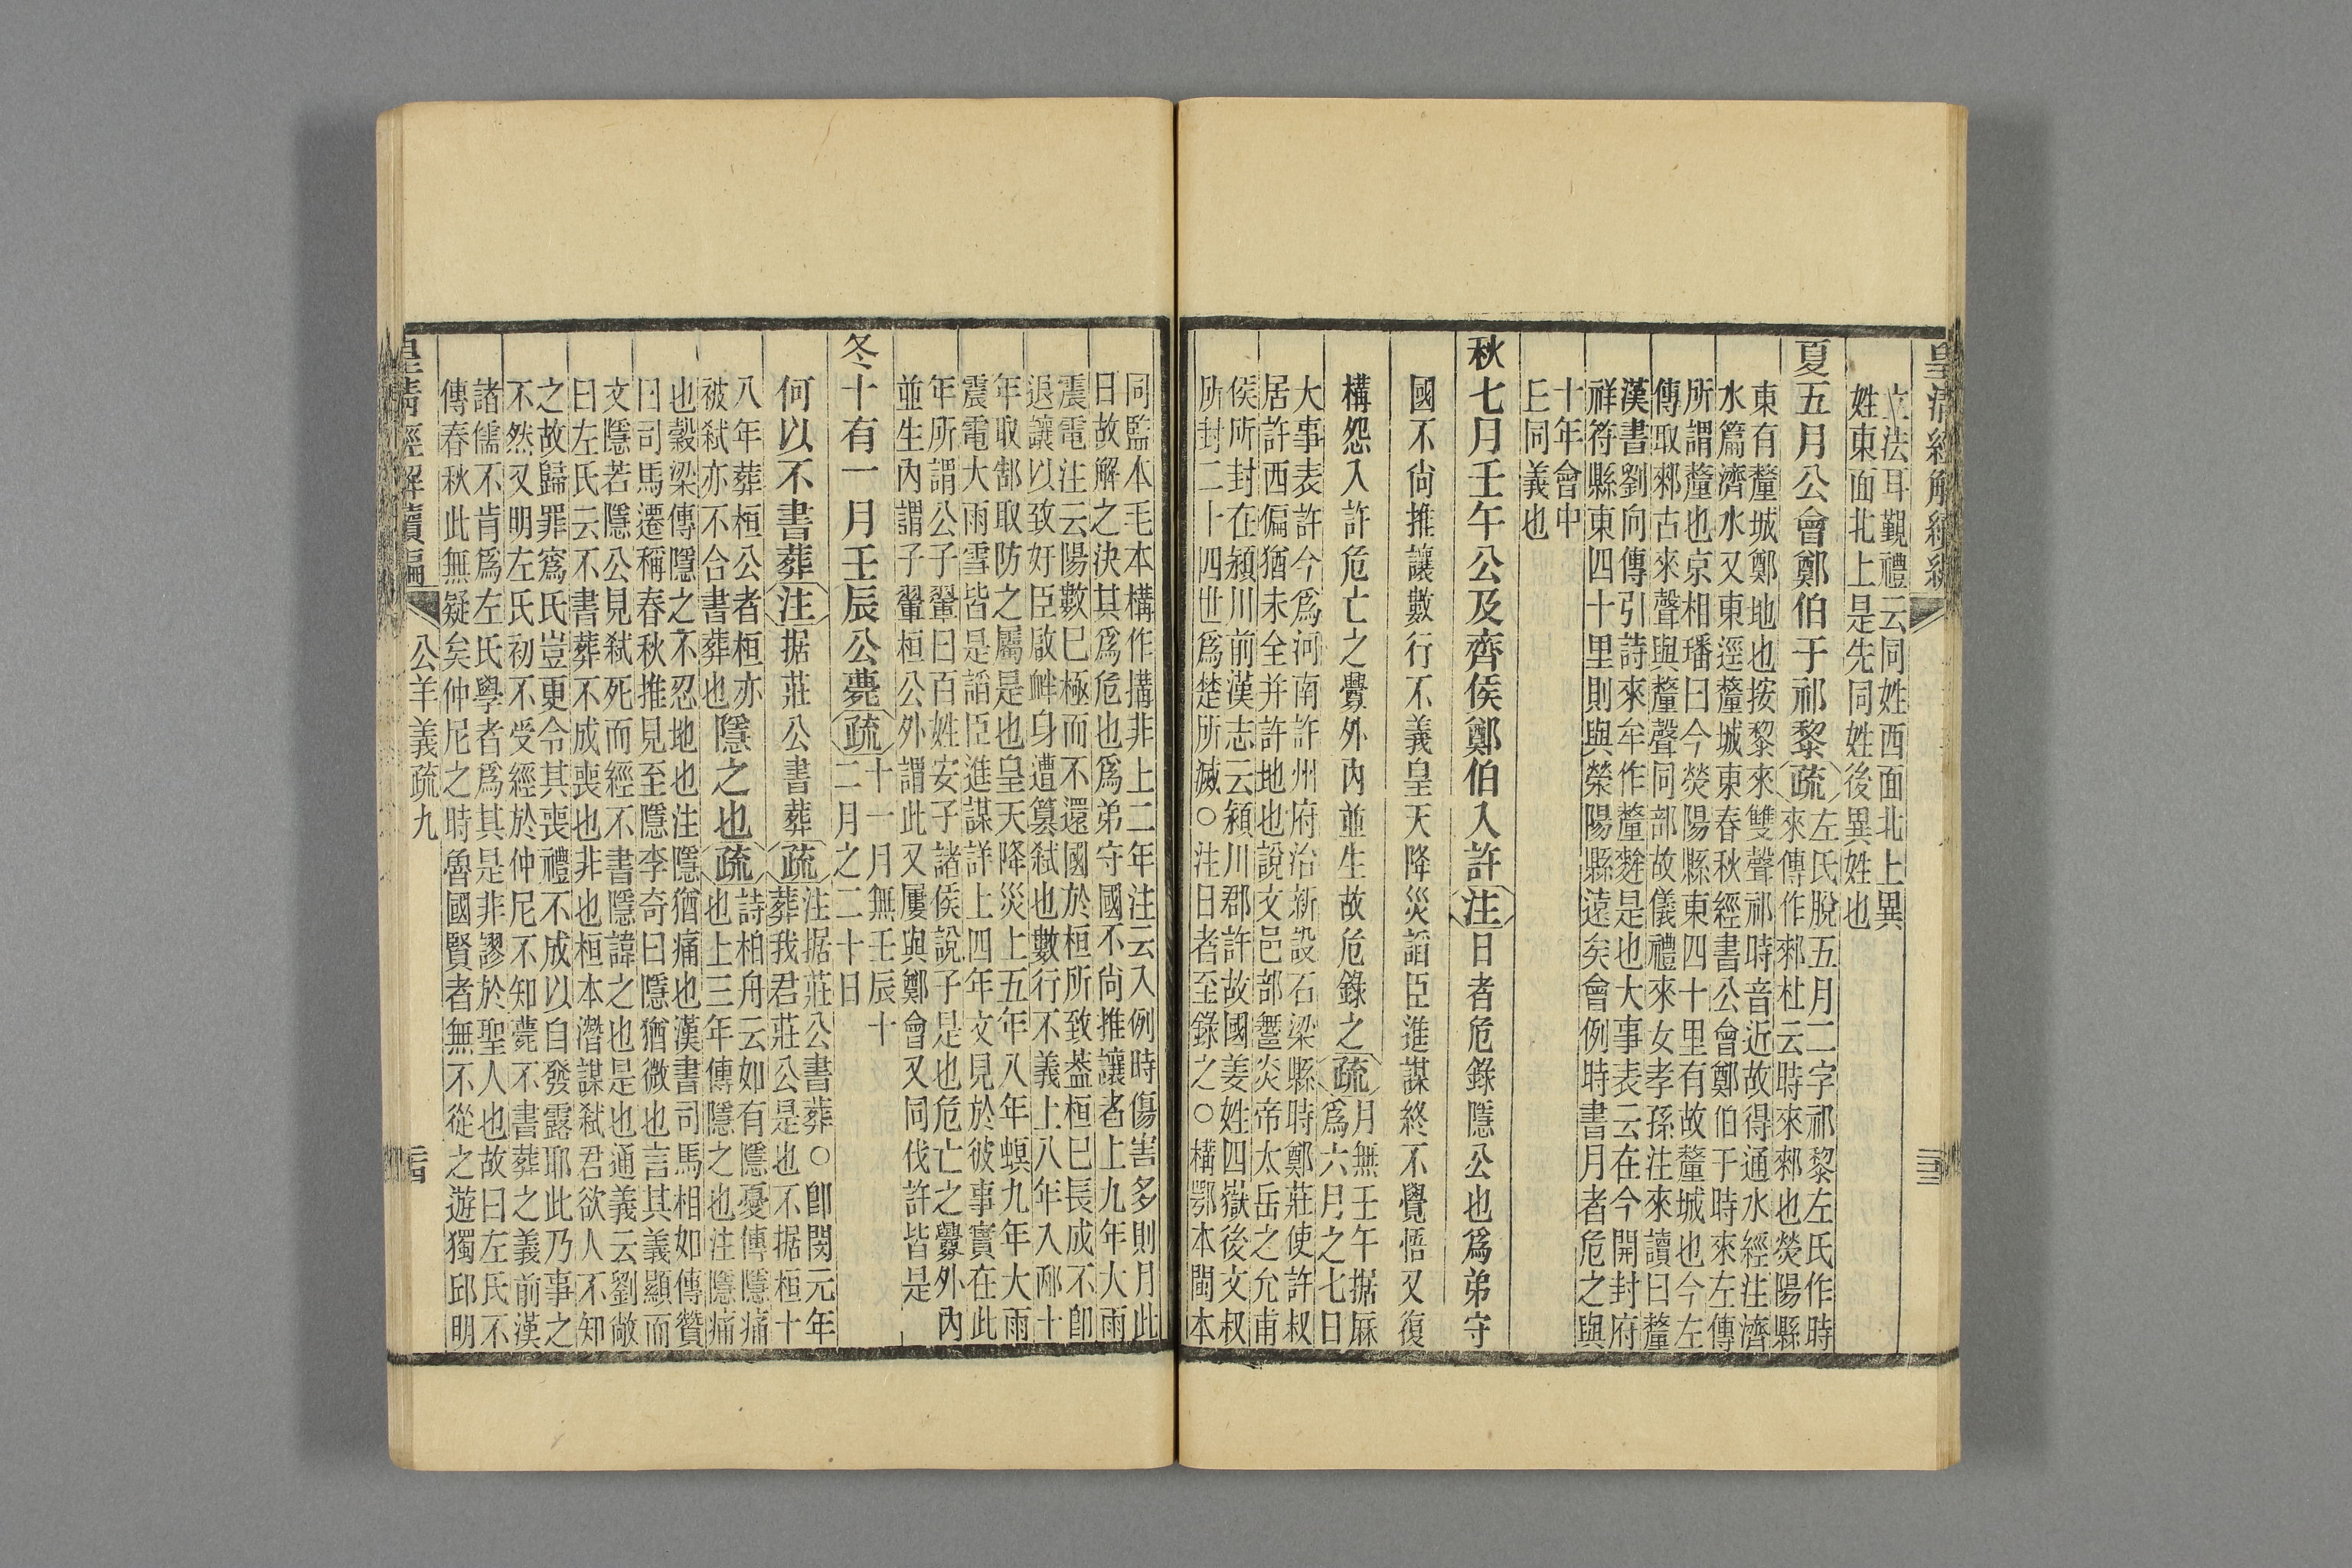 皇清經解續編
立法耳覲禮云同姓西面北上異
姓東面北上是先同姓後異姓也
夏五月公會鄭伯于祁黎疏
左氏脫五月二字祁黎左氏作時
來傳作郲杜云時來郲也熒陽縣
東有釐城鄭地也按黎來雙聲祁時音近故得通水經注濟
水篇濟水又東逕釐城東春秋經書公會鄭伯于時來左傳
所謂釐也京相璠曰今熒陽縣東四十里有故釐城也今左
傳取郲古來聲與釐聲同部故儀禮來女孝孫注來讀曰釐
漢書劉向傳引詩來牟作釐麰是也大事表云在今開封府
祥符縣東四十里則與滎陽縣遠矣會例時書月者危之與
十年會中
丘同義也
秋七月壬午公及齊侯鄭伯入許注日者危錄隱公也爲弟守
國不尚推讓數行不義皇天降災諂臣進謀終不覺悟又復
構怨入許危亡之釁外內並生故危錄之疏
月無壬午据厤
爲六月之七日
大事表許今爲河南許州府治新設石梁縣時鄭莊使許叔
居許西偏猶未全并許地也說文邑部鄦炎帝太岳之允甫
侯所封在潁川前漢志云潁川郡許故國姜姓四嶽後文叔
所封二十四世爲楚所滅○注日者至錄之○構鄂本閩本
同監本毛本構作搆非上二年注云入例時傷害多則月此
日故解之決其爲危也爲弟守國不尚推讓者上九年大雨
震電注云陽數已極而不還國於桓所致蓋桓已長成不卽
退讓以致奸臣啟衅身遭篡弒也數行不義上八年入郕十
年取郜取防之屬是也皇天降災上五年八年螟九年大雨
震電大雨雪皆是諂臣進謀詳上四年文見於彼事實在此
年所謂公子翬曰百姓安子諸侯說子是也危亡之釁外內
並生內謂子翬桓公外謂此又屢與鄭會又同伐許皆是
冬十有一月壬辰公薨疏
十一月無壬辰十
二月之二十日
何以不書葬注据莊公書葬疏
注据莊公書葬○卽閔元年
葬我君莊公是也不据桓十
八年葬桓公者桓亦
被弒亦不合書葬也
隱之也疏
詩柏舟云如有隱憂傳隱痛
也上三年傳隱之也注隱痛
也穀梁傳隱之不忍地也注隱猶痛也漢書司馬相如傳贊
曰司馬遷稱春秋推見至隱李奇曰隱猶微也言其義顯而
文隱若隱公見弒死而經不書隱諱之也是也通義云劉敞
曰左氏云不書葬不成喪也非也桓本潛謀弒君欲人不知
之故歸罪寪氏豈更令其喪禮不成以自發露耶此乃事之
不然又明左氏初不受經於仲尼不知薨不書葬之義前漢
諸儒不肯爲左氏學者爲其是非謬於聖人也故曰左氏不
傳春秋此無疑矣仲尼之時魯國賢者無不從之遊獨邱明
皇清經解續編
公羊義疏九